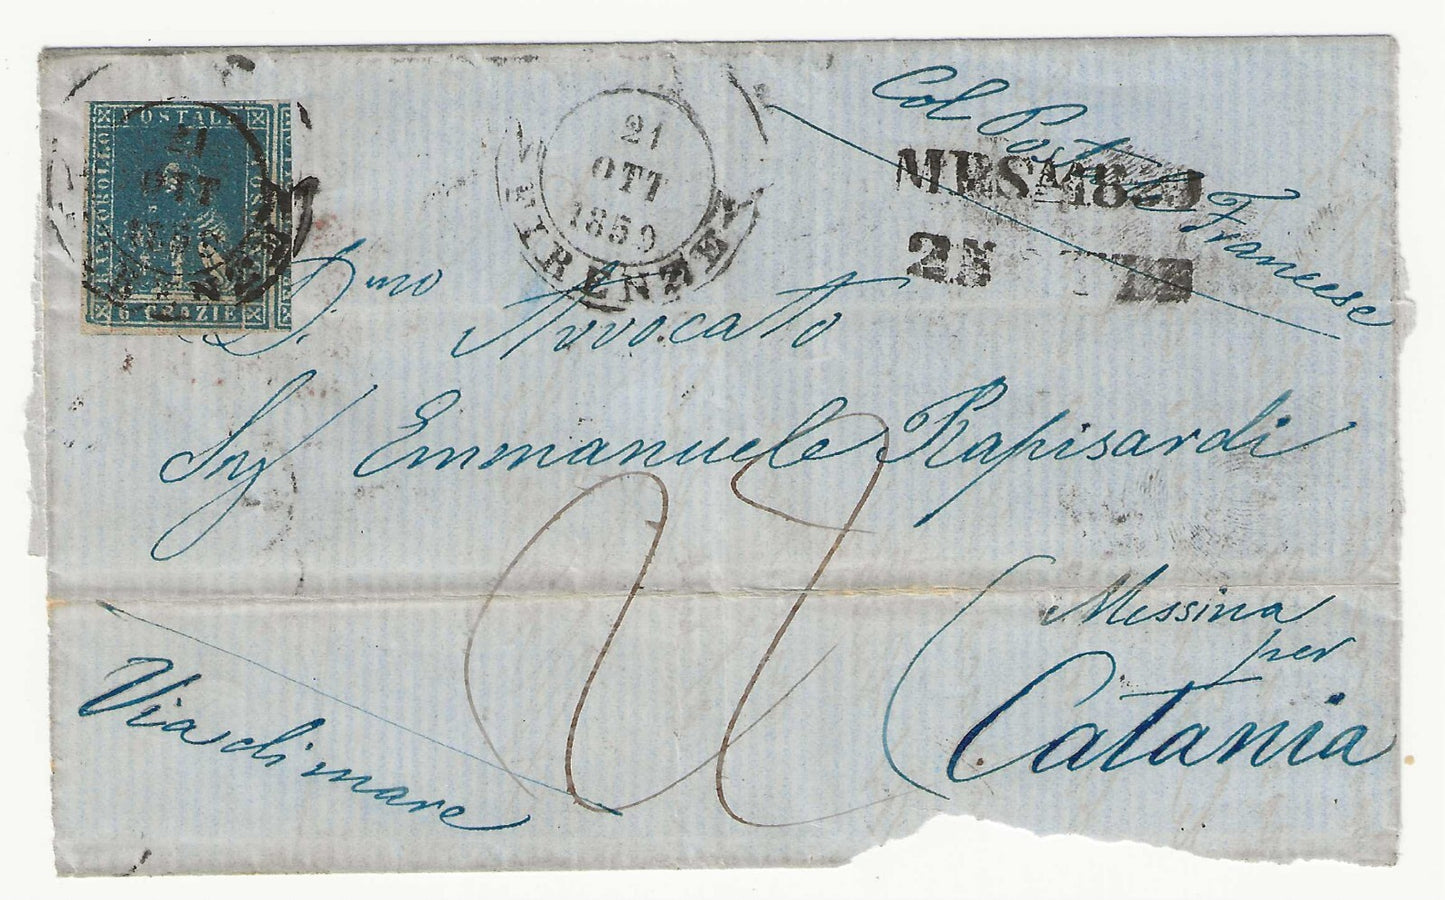 FRANCOBOLLO POSTALE
6 CRAZIE
21
OTT
FIRENZE
21
OTT
1859
FIRENZE
Col Postale Francese
25
D.mo Avvocato
Sig Emmanuele Rapisardi
Messina
per
Catania
Via di mare